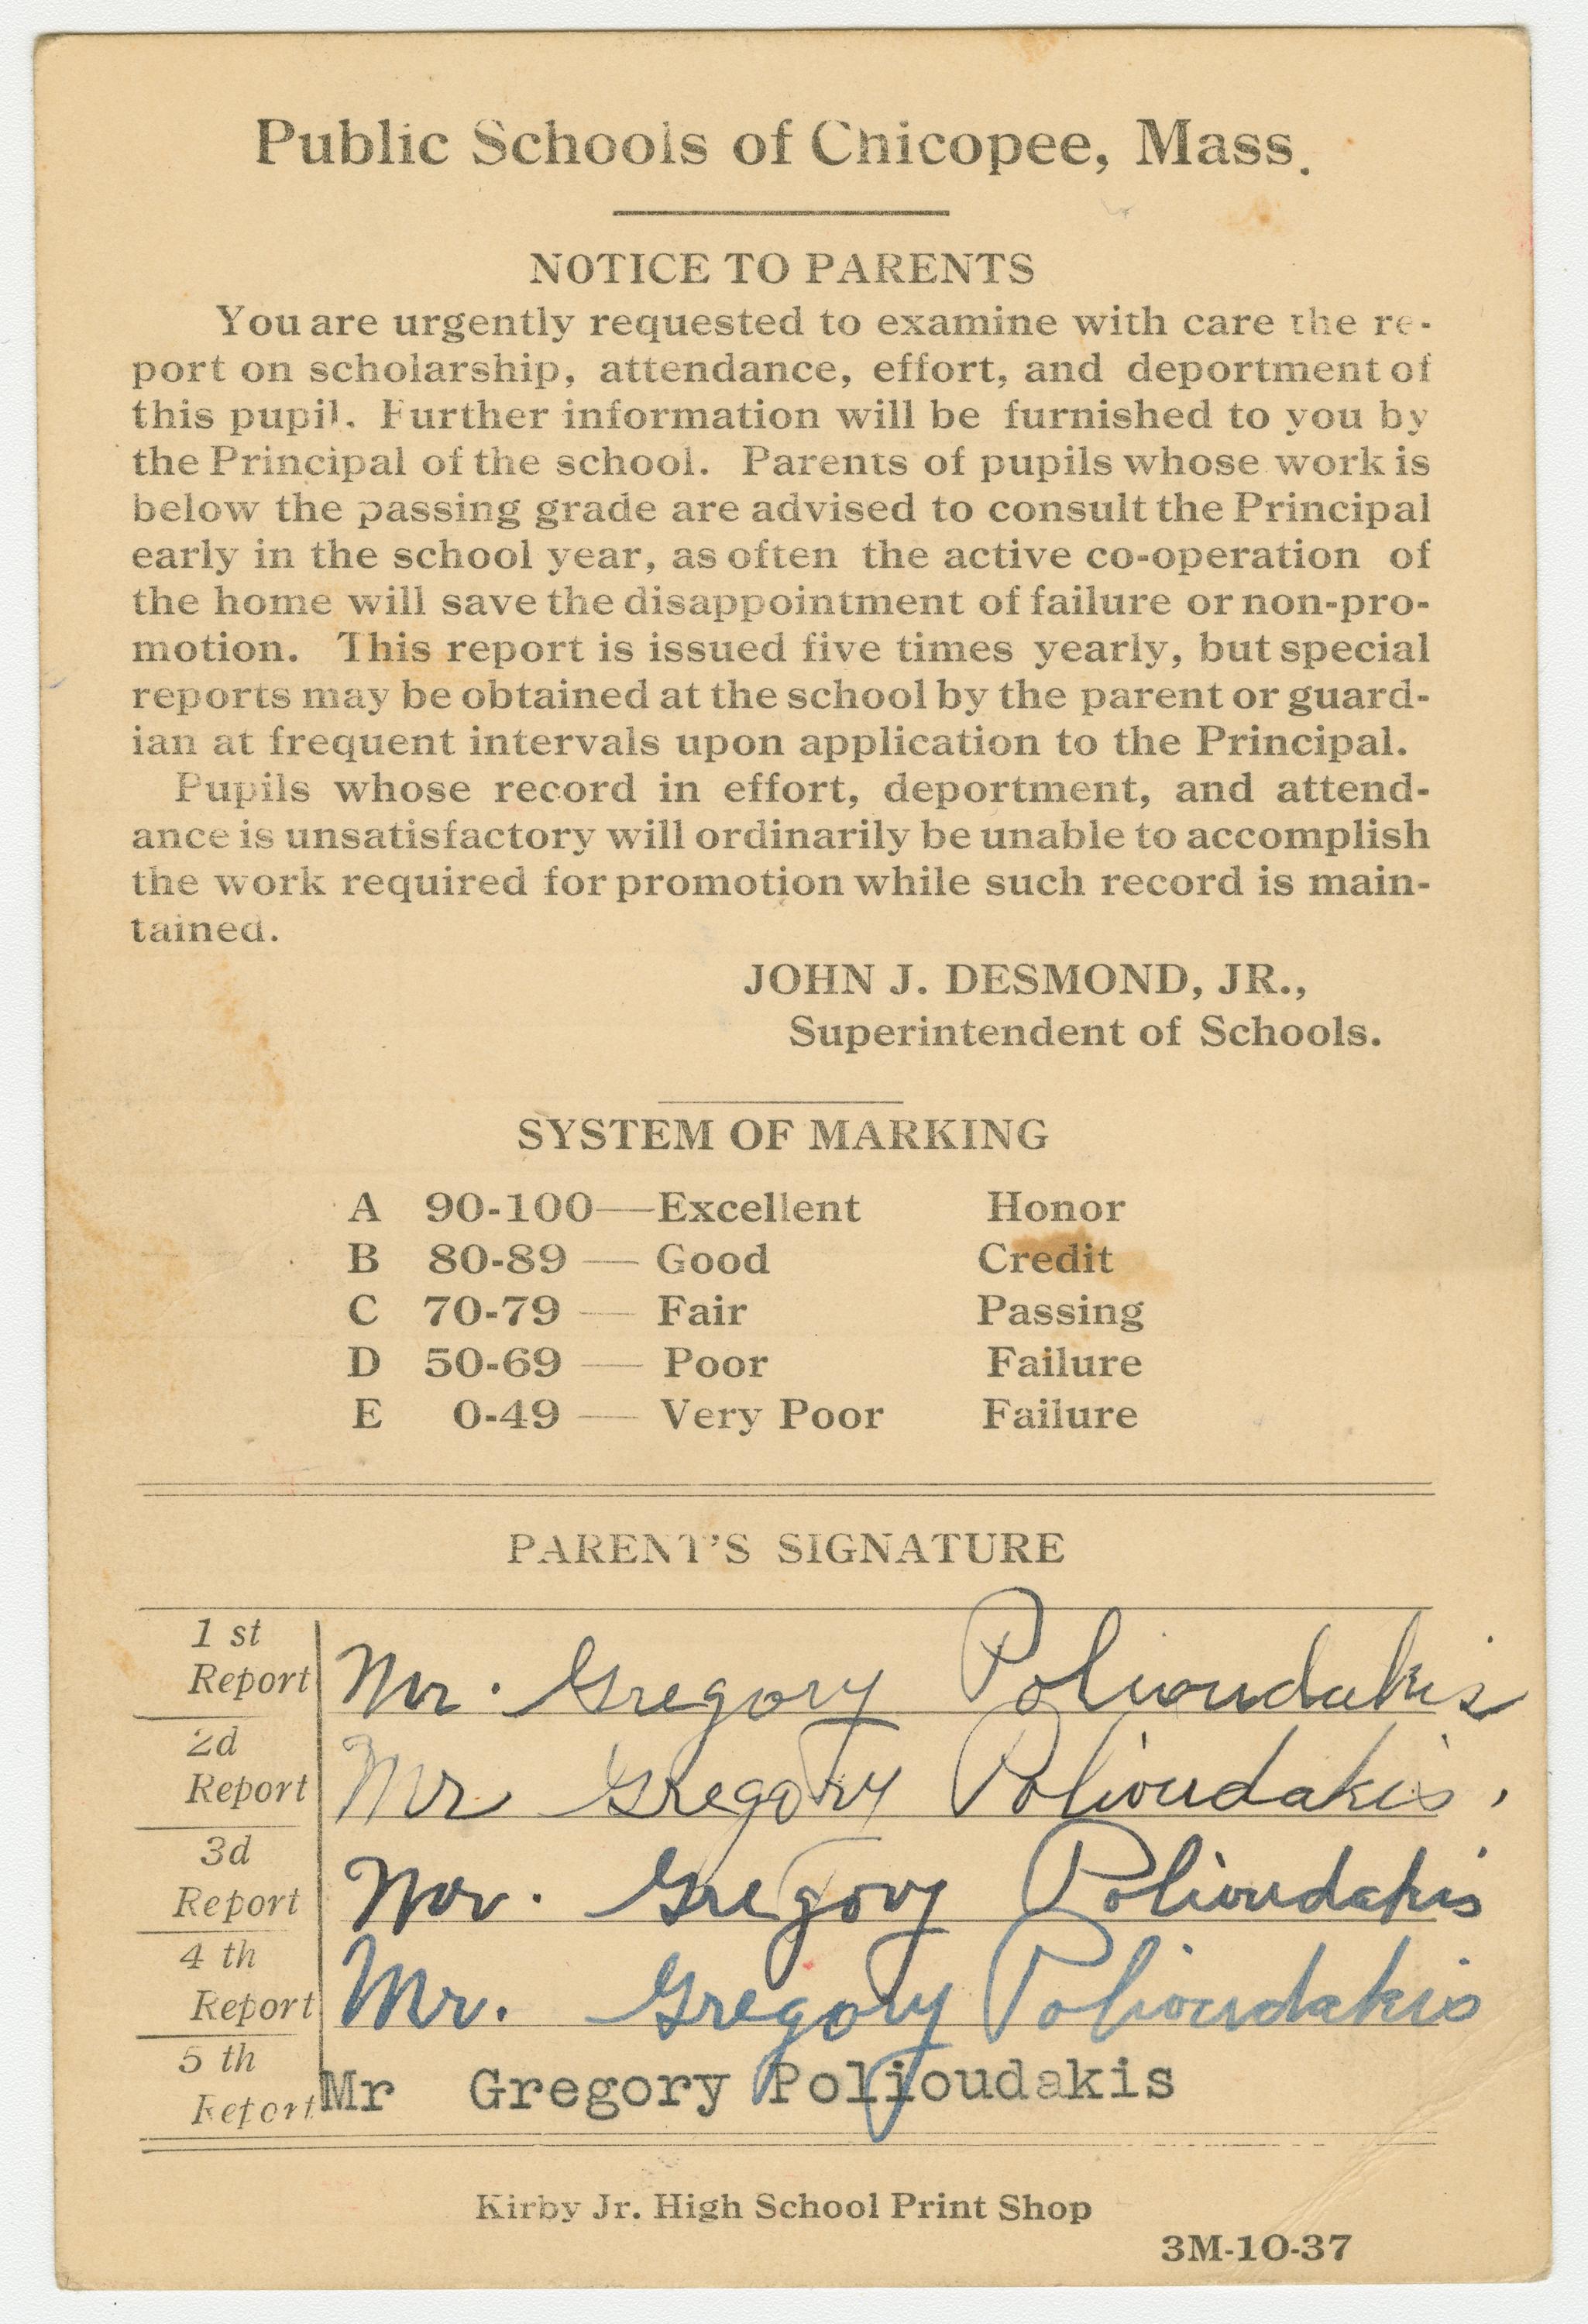 Public Schools of Chicopee, Mass.
NOTICE TO PARENTS
You are urgently requested to examine with care the re-
port on scholarship, attendance, effort, and deportment of
this pupil. Further information will be furnished to you by
the Principal of the school. Parents of pupils whose work is
below the passing grade are advised to consult the Principal
early in the school year, as often the active co-operation of
the home will save the disappointment of failure or non-pro-
motion. This report is issued five times yearly, but special
reports may be obtained at the school by the parent or guard-
ian at frequent intervals upon application to the Principal.
Pupils whose record in effort, deportment, and attend-
ance is unsatisfactory will ordinarily be unable to accomplish
the work required for promotion while such record is main-
tained.
JOHN J. DESMOND, JR.,
Superintendent of Schools.
SYSTEM OF MARKING
A 90-100—Excellent Honor
B 80-89 — Good Credit
C 70-79 — Fair Passing
D 50-69 — Poor Failure
E 0-49 — Very Poor Failure
PARENT'S SIGNATURE
1 st
Report Mr. Gregory Polioudakis
2d
Report Mr Gregory Polioudakis.
3d
Report Mr. Gregory Polioudakis
4 th
Report Mr. Gregory Polioudakis
5 th
Report Mr Gregory Polioudakis
Kirby Jr. High School Print Shop
3M-10-37